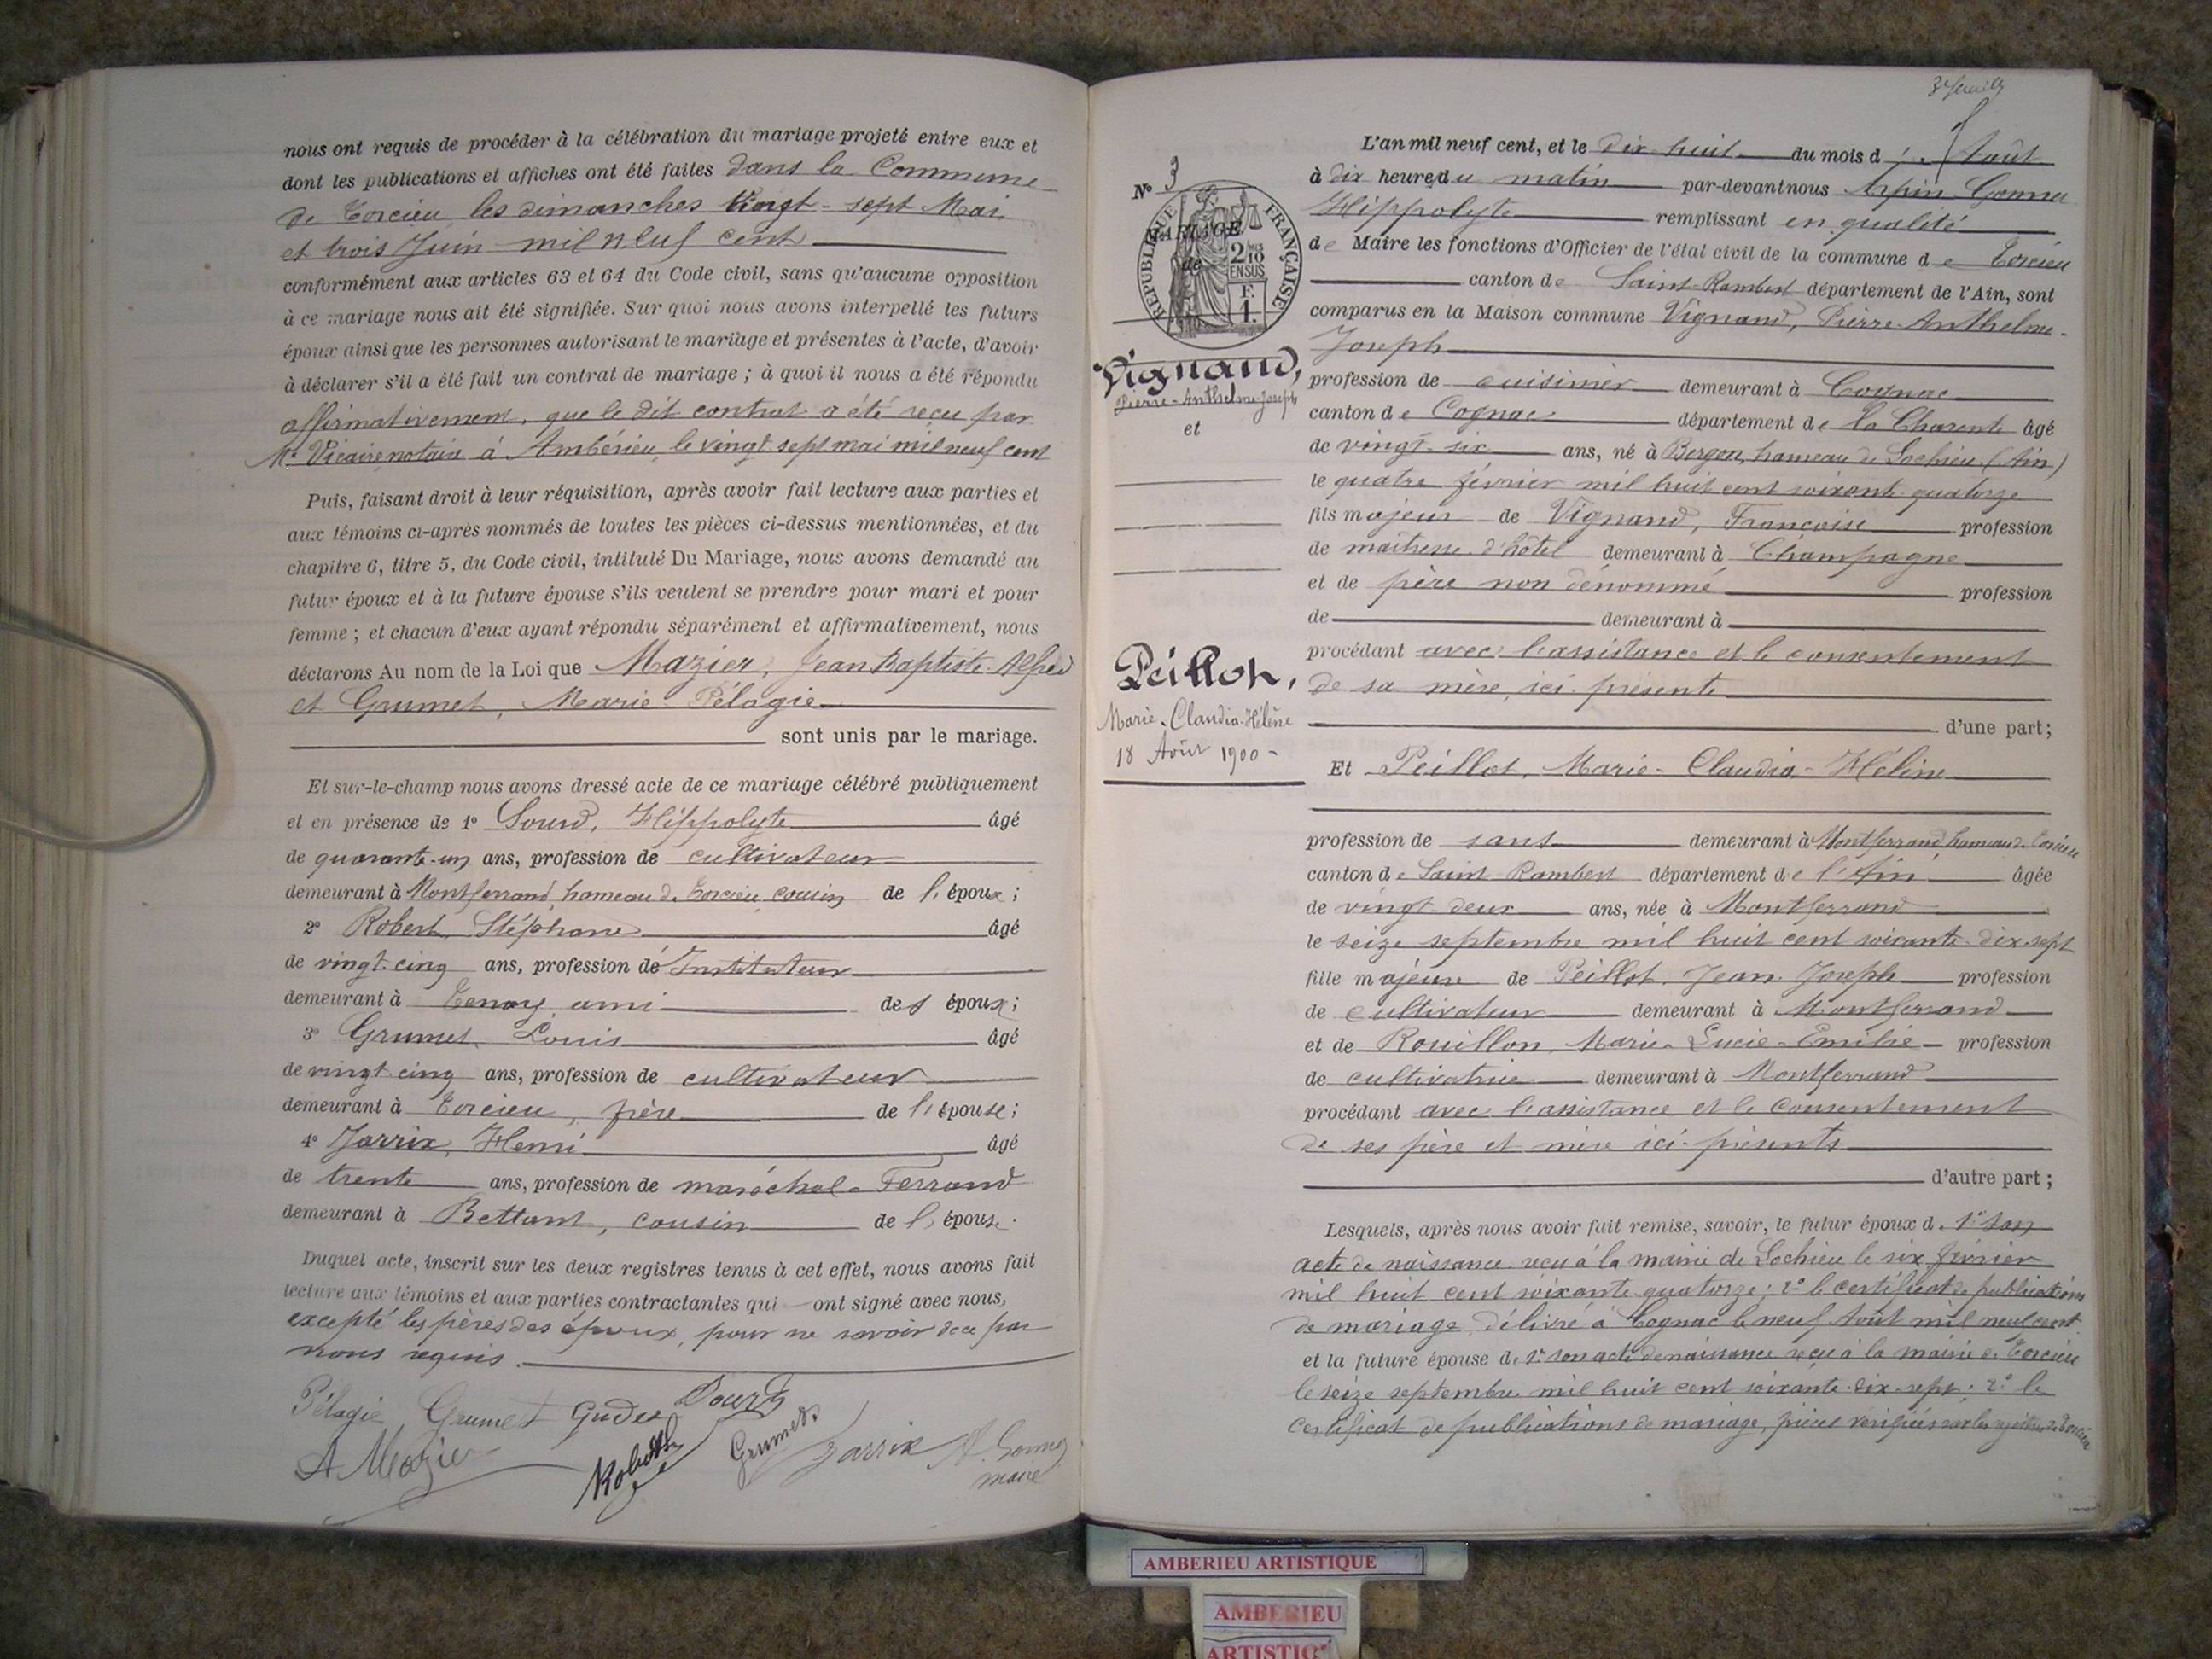 nous ont requis de procéder à la célébration du mariage projeté entre eux et
dont les publications et affiches ont été faites dans la Commune
de Torcieu les dimanches vingt-sept Mai
et trois Juin mil neuf cent
conformément aux articles 63 et 64 du Code civil, sans qu'aucune opposition
à ce mariage nous ait été signifiée. Sur quoi nous avons interpellé les futurs
époux ainsi que les personnes autorisant le mariage et présentes à l'acte, d'avoir
à déclarer s'il a été fait un contrat de mariage ; à quoi il nous a été répondu
affirmativement, que le dit contrat a été reçu par
Me Vicaire notaire à Ambérieu, le vingt sept mai mil neuf cent
Puis, faisant droit à leur réquisition, après avoir fait lecture aux parties et
aux témoins ci-après nommés de toutes les pièces ci-dessus mentionnées, et du
chapitre 6, titre 5, du Code civil, intitulé Du Mariage, nous avons demandé au
futur époux et à la future épouse s'ils veulent se prendre pour mari et pour
femme ; et chacun d'eux ayant répondu séparément et affirmativement, nous
déclarons Au nom de la Loi que Mazier, Jean Baptiste Alfred
et Grumet, Marie Pélagie
sont unis par le mariage.
Et sur-le-champ nous avons dressé acte de ce mariage célébré publiquement
et en présence de 1° Sourd, Hippolyte âgé
de quarante-un ans, profession de cultivateur
demeurant à Montferrand hameau de Torcieu cousin de l'époux ;
2° Robert Stéphane âgé
de vingt-cinq ans, profession de Instituteur
demeurant à Tenay, ami des époux ;
3° Grumet Louis âgé
de vingt cinq ans, profession de cultivateur
demeurant à Torcieu, frère de l'épouse ;
4° Jarrix, Henri âgé
de trente ans, profession de maréchal-Ferrand
demeurant à Bettant, cousin de l'épouse.
Duquel acte, inscrit sur les deux registres tenus à cet effet, nous avons fait
lecture aux témoins et aux parties contractantes qui ont signé avec nous,
excepté les pères des époux, pour ne savoir de ce par
nous requis.
Pélagie Grumet
A Mazier
Grumet
Jarrix
maire
L'an mil neuf cent, et le dix huit du mois d'Août
No 3
à dix heures du matin par-devant nous Arpin-Gonnet
Hippolyte remplissant en qualité
RÉPUBLIQUE FRANÇAISE
MARIAGE
de
2/10 EN SUS
F. 1.
de Maire les fonctions d'Officier de l'état civil de la commune de Torcieu
canton de Saint-Rambert département de l'Ain, sont
comparus en la Maison commune Vignand, Pierre-Anthelme-
Joseph
Vignand,
Pierre-Anthelme-Joseph
et
profession de cuisinier demeurant à Cognac
canton de Cognac département de la Charente âgé
de vingt-six ans, né à Bergon, hameau de Lochieu (Ain)
le quatre février mil huit cent soixante quatorze
fils majeur de Vignand, Françoise profession
de maîtresse d'hôtel demeurant à Champagne
et de père non dénommé profession
de demeurant à
procédant avec l'assistance et le consentement
de sa mère, ici présente
d'une part ;
Peillot,
Marie-Claudia-Hélène
18 Août 1900 -
Et Peillot, Marie-Claudia-Hélène
profession de sans demeurant à Montferrand hameau de Torcieu
canton de Saint-Rambert département de l'Ain âgée
de vingt-deux ans, née à Montferrand
le seize septembre mil huit cent soixante-dix-sept
fille majeure de Peillot Jean Joseph profession
de cultivateur demeurant à Montferrand
et de Rouillon, Marie-Lucie-Emilie profession
de cultivatrice demeurant à Montferrand
procédant avec l'assistance et le consentement
de ses père et mère ici présents
d'autre part ;
Lesquels, après nous avoir fait remise, savoir, le futur époux de 1° son
acte de naissance reçu à la mairie de Lochieu le six février
mil huit cent soixante quatorze ; 2° le certificat de publications
de mariage délivré à Cognac le neuf Août mil neuf cent
et la future épouse de 1° son acte de naissance reçu à la mairie de Torcieu
le seize septembre mil huit cent soixante-dix-sept ; 2° le
certificat de publications de mariage, pièces vérifiées sur les registres de Torcieu
AMBERIEU ARTISTIQUE
AMBERIEU